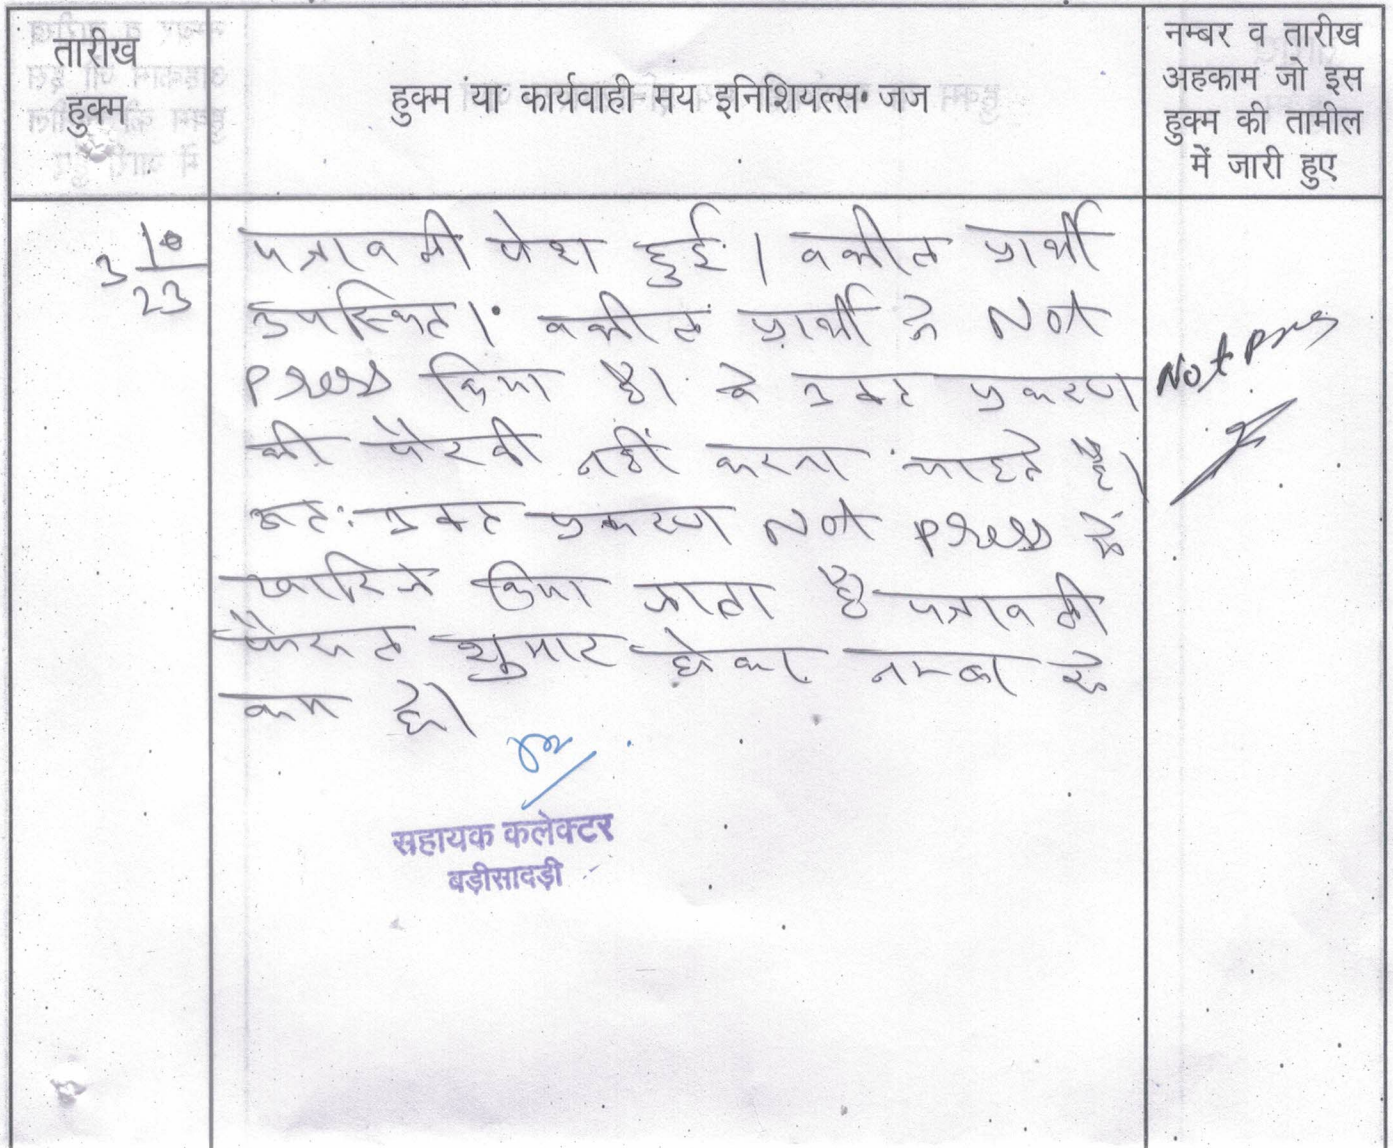 तारीख
हुक्म
हुक्म या कार्यवाही मय इनिशियल्स जज
नम्बर व तारीख
अहकाम जो इस
हुक्म की तामील
में जारी हुए
3 10/23
पत्रावली पेश हुई। वकील प्रार्थी
उपस्थित। वकील प्रार्थी ने Not
Press किया है। वे उक्त प्रकरण
की पैरवी नहीं करना चाहते है।
अतः उक्त प्रकरण Not Press से
खारिज किया जाता है पत्रावली
फैसल शुमार होकर नम्बर से
कम हो।
Not Press
सहायक कलेक्टर
बड़ीसादड़ी